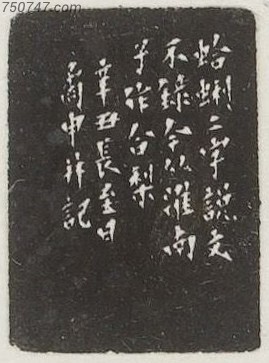 750747.com
蛤蜊二字說文
不錄今从淮南
子作合梨
辛丑長至日
申祥記